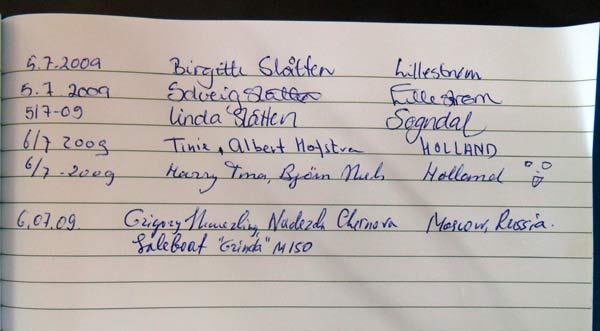 5.7.2009 Birgitte Slåtten Lillestrøm
5.7.2009 Solveig Slåtten Lillestrøm
5/7-09 Linda Slåtten Sogndal
6/7 2009 Tinie, Albert Hofstra HOLLAND
6/7-2009 Harry Tma, Björn Holland
6.07.09. Grigory Nadezda Chernova Moscow, Russia.
Saleboat "Grinda" M150